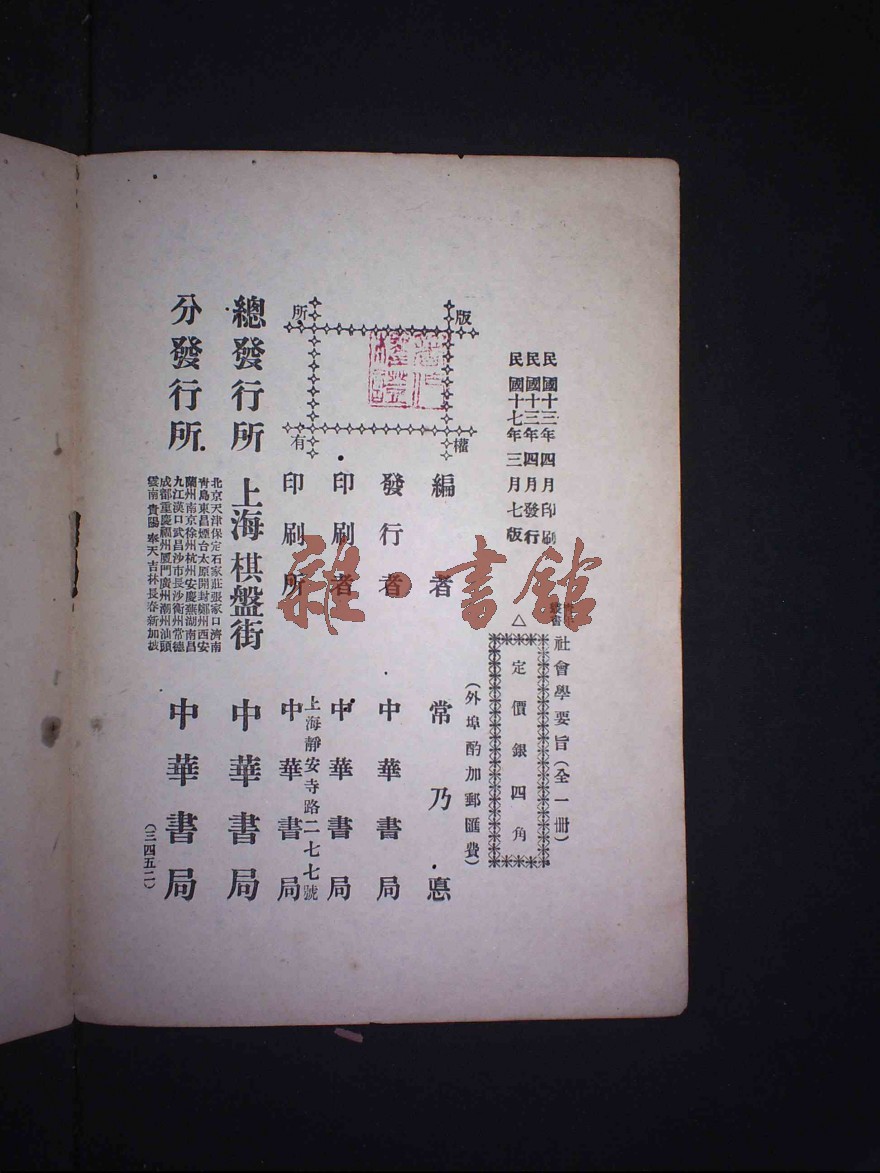 民國十三年四月印刷
民國十三年四月發行
民國十七年三月七版
叢書
社會學要旨(全一冊)
△定價銀四角
(外埠酌加郵匯費)
版權所有
編者 常乃悳
發行者 中華書局
印刷者 中華書局
上海靜安寺路二七七號
印刷所 中華書局
總發行所 上海棋盤街 中華書局
分發行所 中華書局
北京天津保定石家莊張家口濟南
靑島東昌煙台太原開封鄭州西安
蘭州南京徐州杭州安慶蕪湖南昌
九江漢口武昌沙市長沙衡州常德
成都重慶福州厦門廣州潮州汕頭
雲南貴陽奉天吉林長春新加坡
(三四五二)
雜·書館